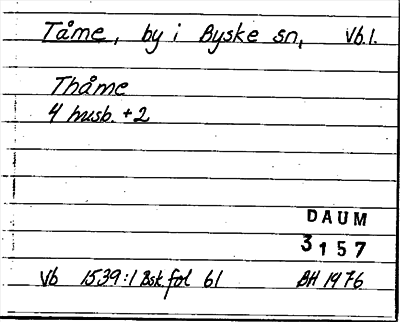 Tåme, by i Byske sn, Vb.l.
Thåme
4 husb. +2
DAUM
3157
Vb 1539:1 Bsk. fol 61 BH 1976